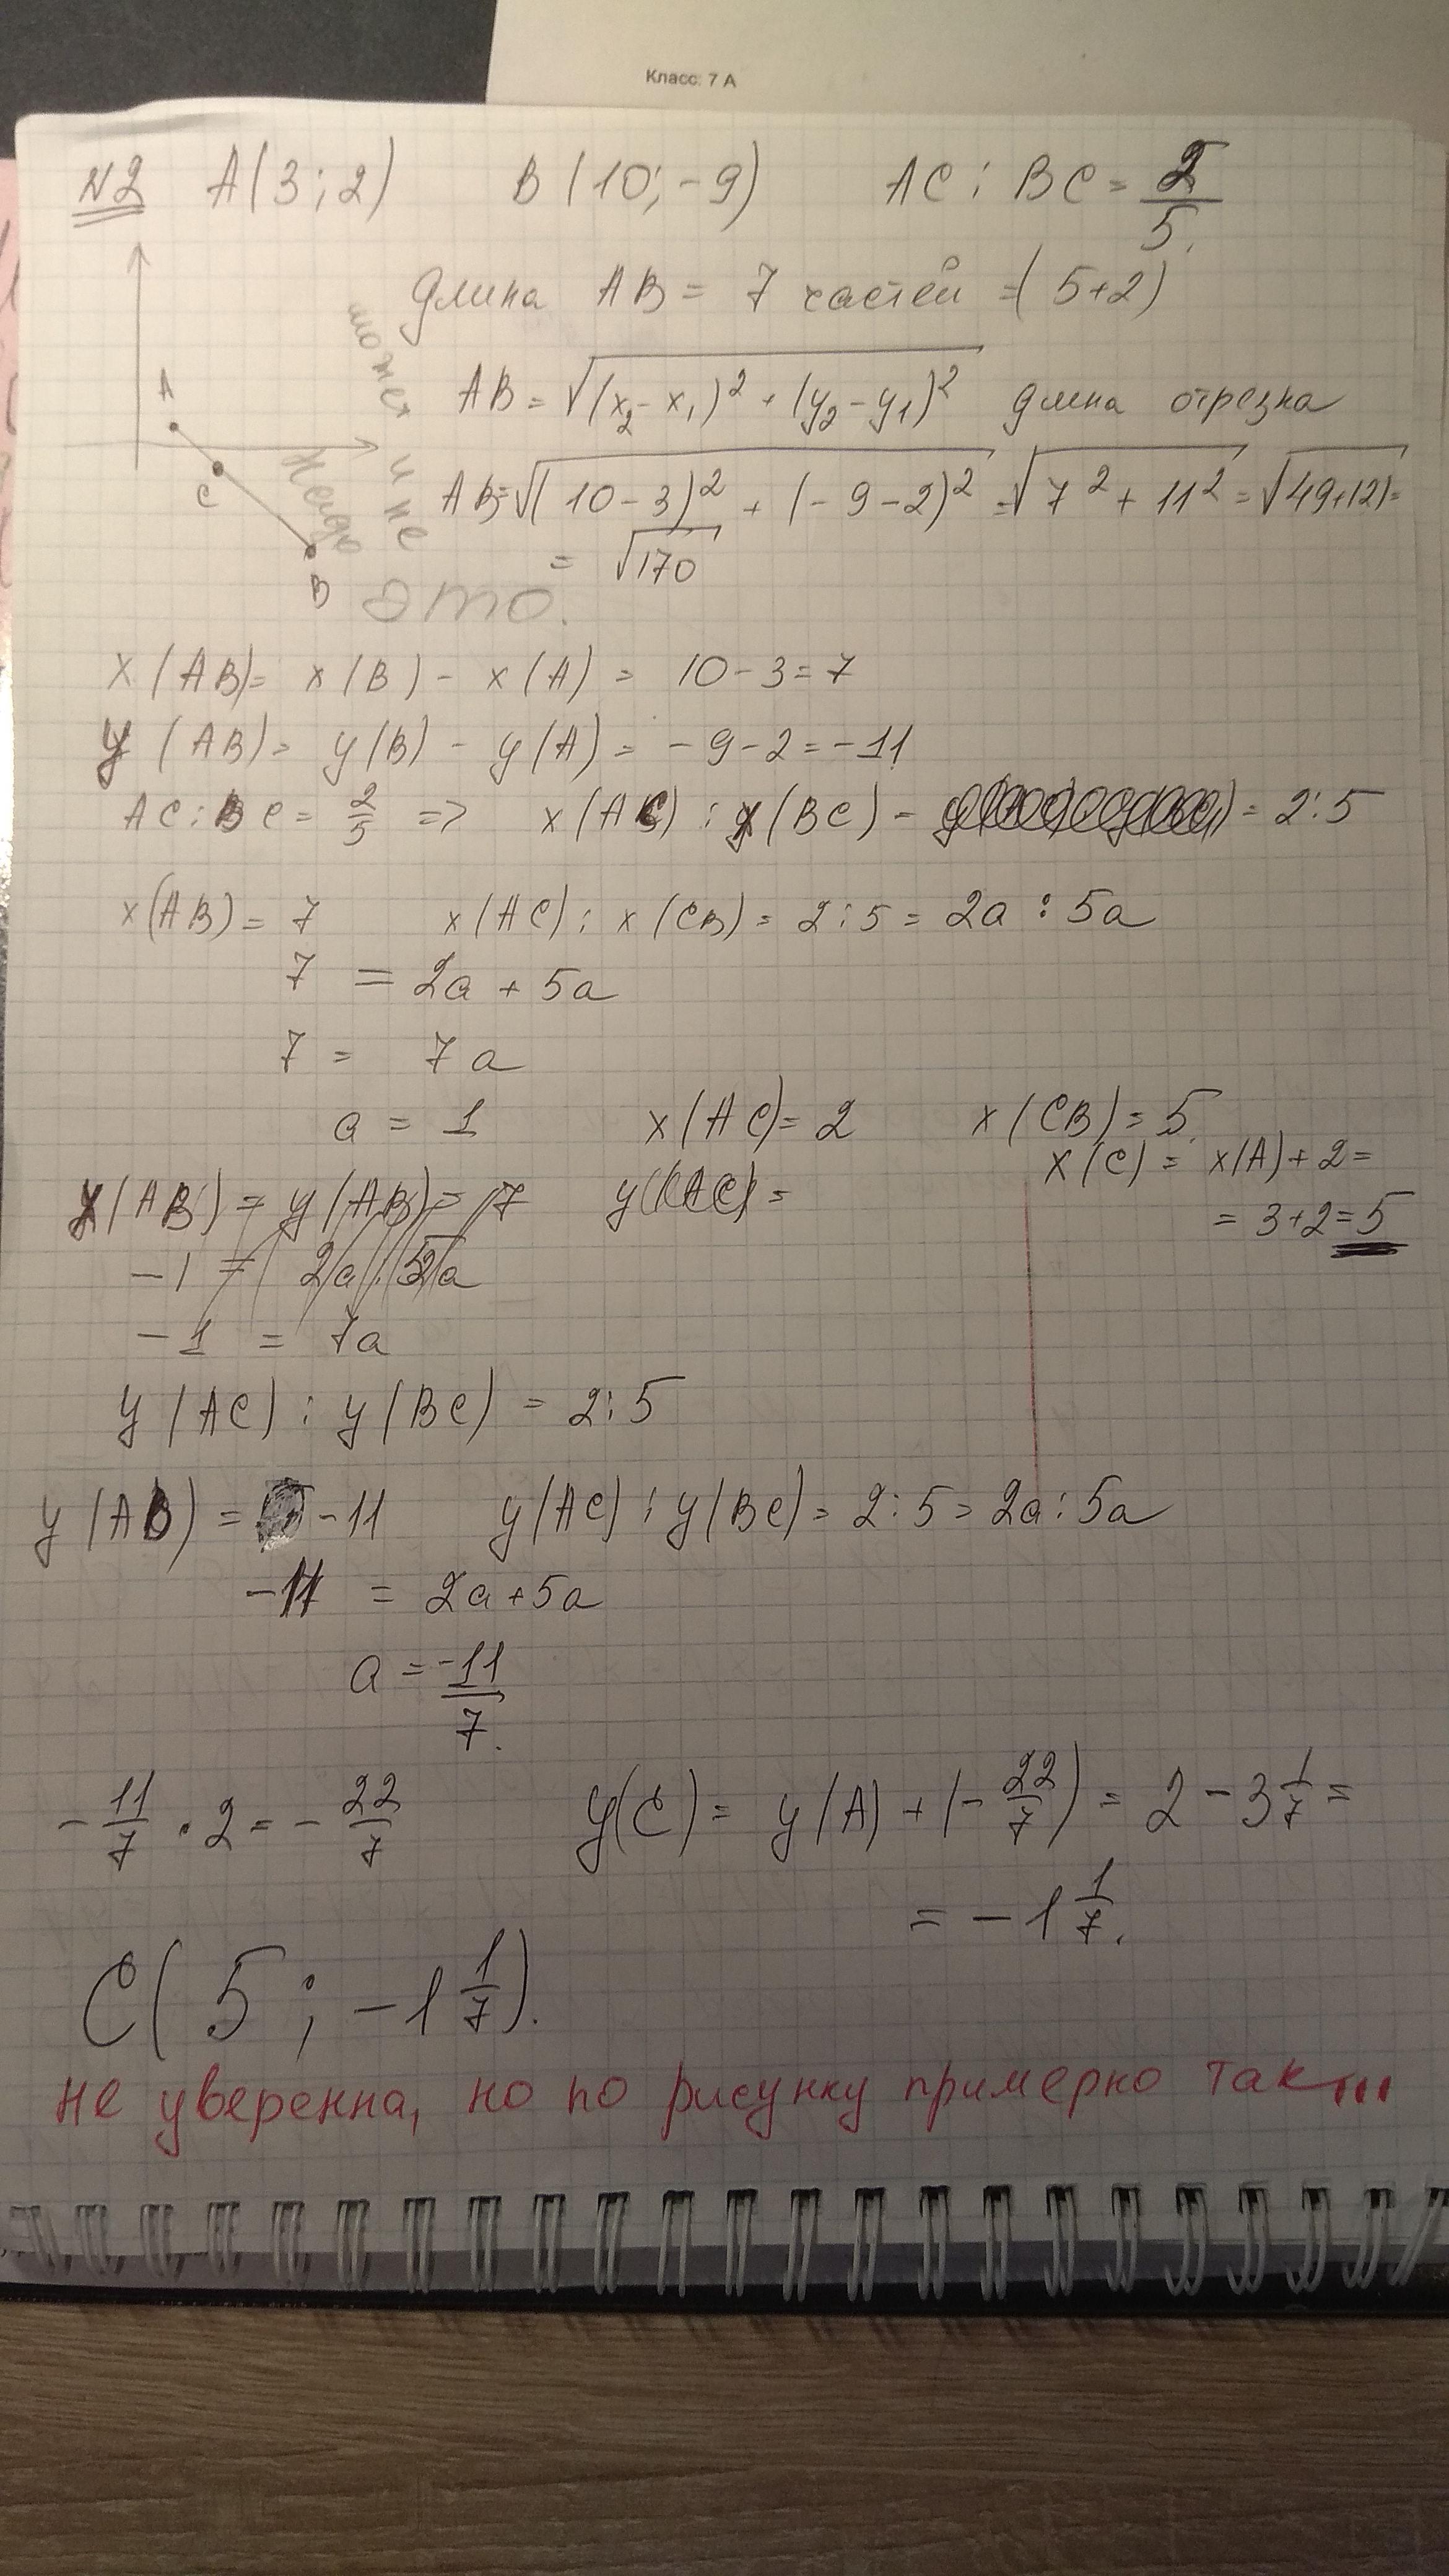 Класс: 7 А
N2 A(3;2) B(10;-9) AC:BC=2/5.
длина AB = 7 частей =(5+2)
может и не надо это.
A
C
B
AB=√((x₂-x₁)²+(y₂-y₁)²) длина отрезка
AB=√((10-3)²+(-9-2)²)=√(7²+11²)=√(49+121)=
=√170
x(AB)= x(B)-x(A)= 10-3=7
y(AB)= y(B)-y(A)= -9-2=-11
AC:BC=2/5 => x(AC):x(BC)= =2:5
x(AB)=7 x(AC):x(CB)=2:5=2a:5a
7 = 2a+5a
7 = 7a
a = 1 x(AC)=2 x(CB)=5
x(C)= x(A)+2=
= 3+2=5
y(AB)=7 y(AC)=
-1 = 7a
y(AC):y(BC)=2:5
y(AB)= -11 y(AC):y(BC)=2:5=2a:5a
-11 = 2a+5a
a=-11/7.
-11/7·2=-22/7 y(C)= y(A)+(-22/7)= 2-3 1/7=
=-1 1/7.
C(5;-1 1/7).
не уверенна, но по рисунку примерно так...